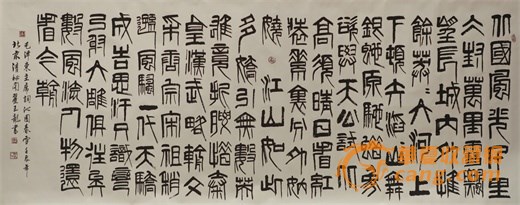 北國風光千里
冰封萬里雪飄
望長城内外惟
餘莽莽大河上
下頓失滔滔山舞
銀蛇原馳蠟象
欲與天公試比
高須晴日看紅
裝素裹分外妖
嬈 江山如此
多嬌引無數英
雄競折腰惜秦
皇漢武略輸文
采唐宗宋祖稍
遜風騷一代天驕
成吉思汗只識彎
弓射大雕俱往矣
數風流人物還
看今朝
毛澤東主席詞沁園春雪
北京 玉龍書